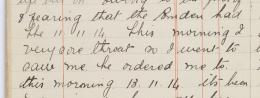 & hearing that the Emden had
the 11.11.14 This morning I
very sore throat so I went to
saw me he ordered me to
this morning 13.11.14 its been